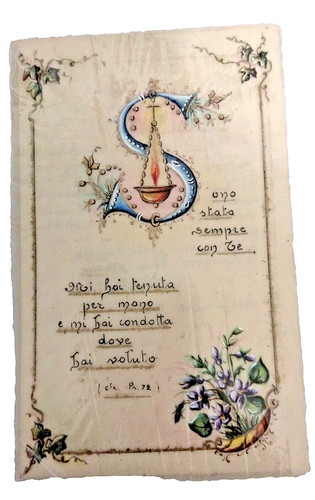 Sono
stata
sempre
con Te.
Mi hai tenuta
per mano
e mi hai condotta
dove
hai voluto
(cfr. Ps. 72)